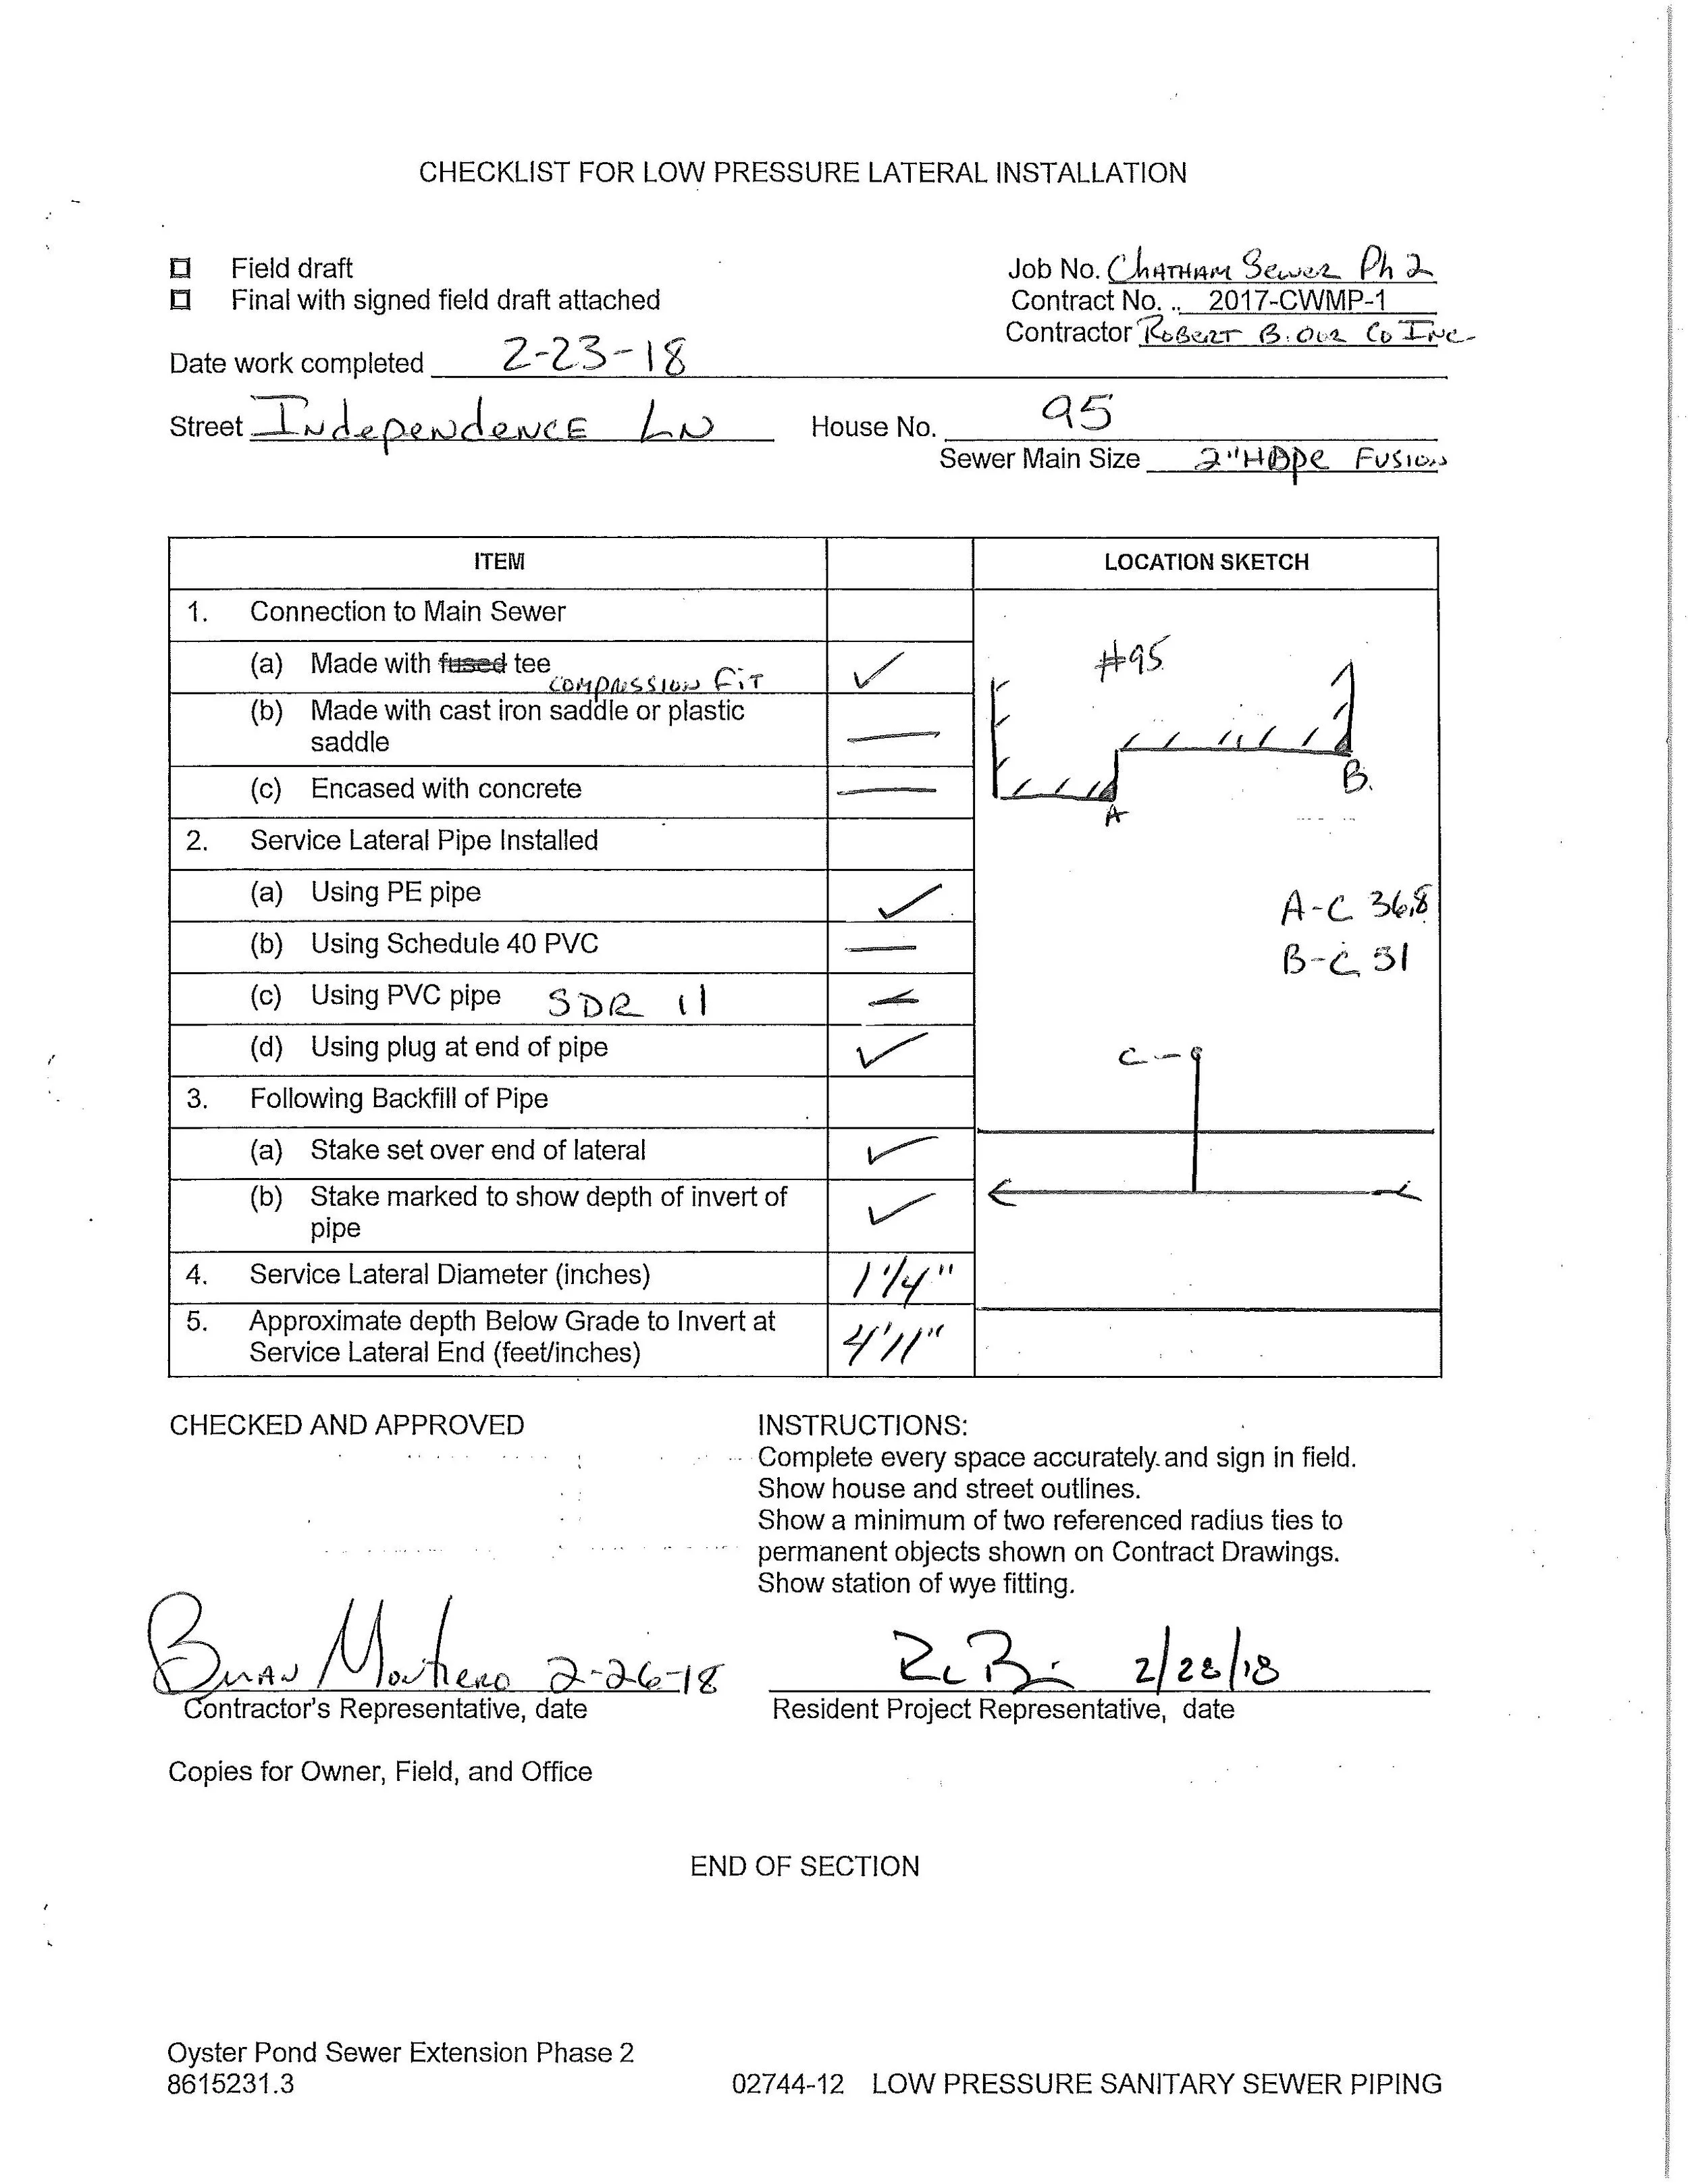 CHECKLIST FOR LOW PRESSURE LATERAL INSTALLATION
Field draft
Final with signed field draft attached
Job No. Chatham Sewer Ph 2
Contract No. .. 2017-CWMP-1
Contractor Robert B. Our Co Inc.
Date work completed 2-23-18
Street Independence Ln House No. 95
Sewer Main Size 2" HDpe Fusion
ITEM LOCATION SKETCH
1. Connection to Main Sewer
(a) Made with fused tee compression Fit ✓
(b) Made with cast iron saddle or plastic
saddle —
(c) Encased with concrete —
2. Service Lateral Pipe Installed
(a) Using PE pipe ✓
(b) Using Schedule 40 PVC —
(c) Using PVC pipe SDR 11 —
(d) Using plug at end of pipe ✓
3. Following Backfill of Pipe
(a) Stake set over end of lateral ✓
(b) Stake marked to show depth of invert of
pipe ✓
4. Service Lateral Diameter (inches) 1 1/4"
5. Approximate depth Below Grade to Invert at
Service Lateral End (feet/inches) 4'11"
#95
B.
A
A-C 36.8
B-C 31
C
CHECKED AND APPROVED
INSTRUCTIONS:
Complete every space accurately and sign in field.
Show house and street outlines.
Show a minimum of two referenced radius ties to
permanent objects shown on Contract Drawings.
Show station of wye fitting.
Brian Montiero 2-26-18
Contractor's Representative, date
2/28/18
Resident Project Representative, date
Copies for Owner, Field, and Office
END OF SECTION
Oyster Pond Sewer Extension Phase 2
8615231.3
02744-12 LOW PRESSURE SANITARY SEWER PIPING